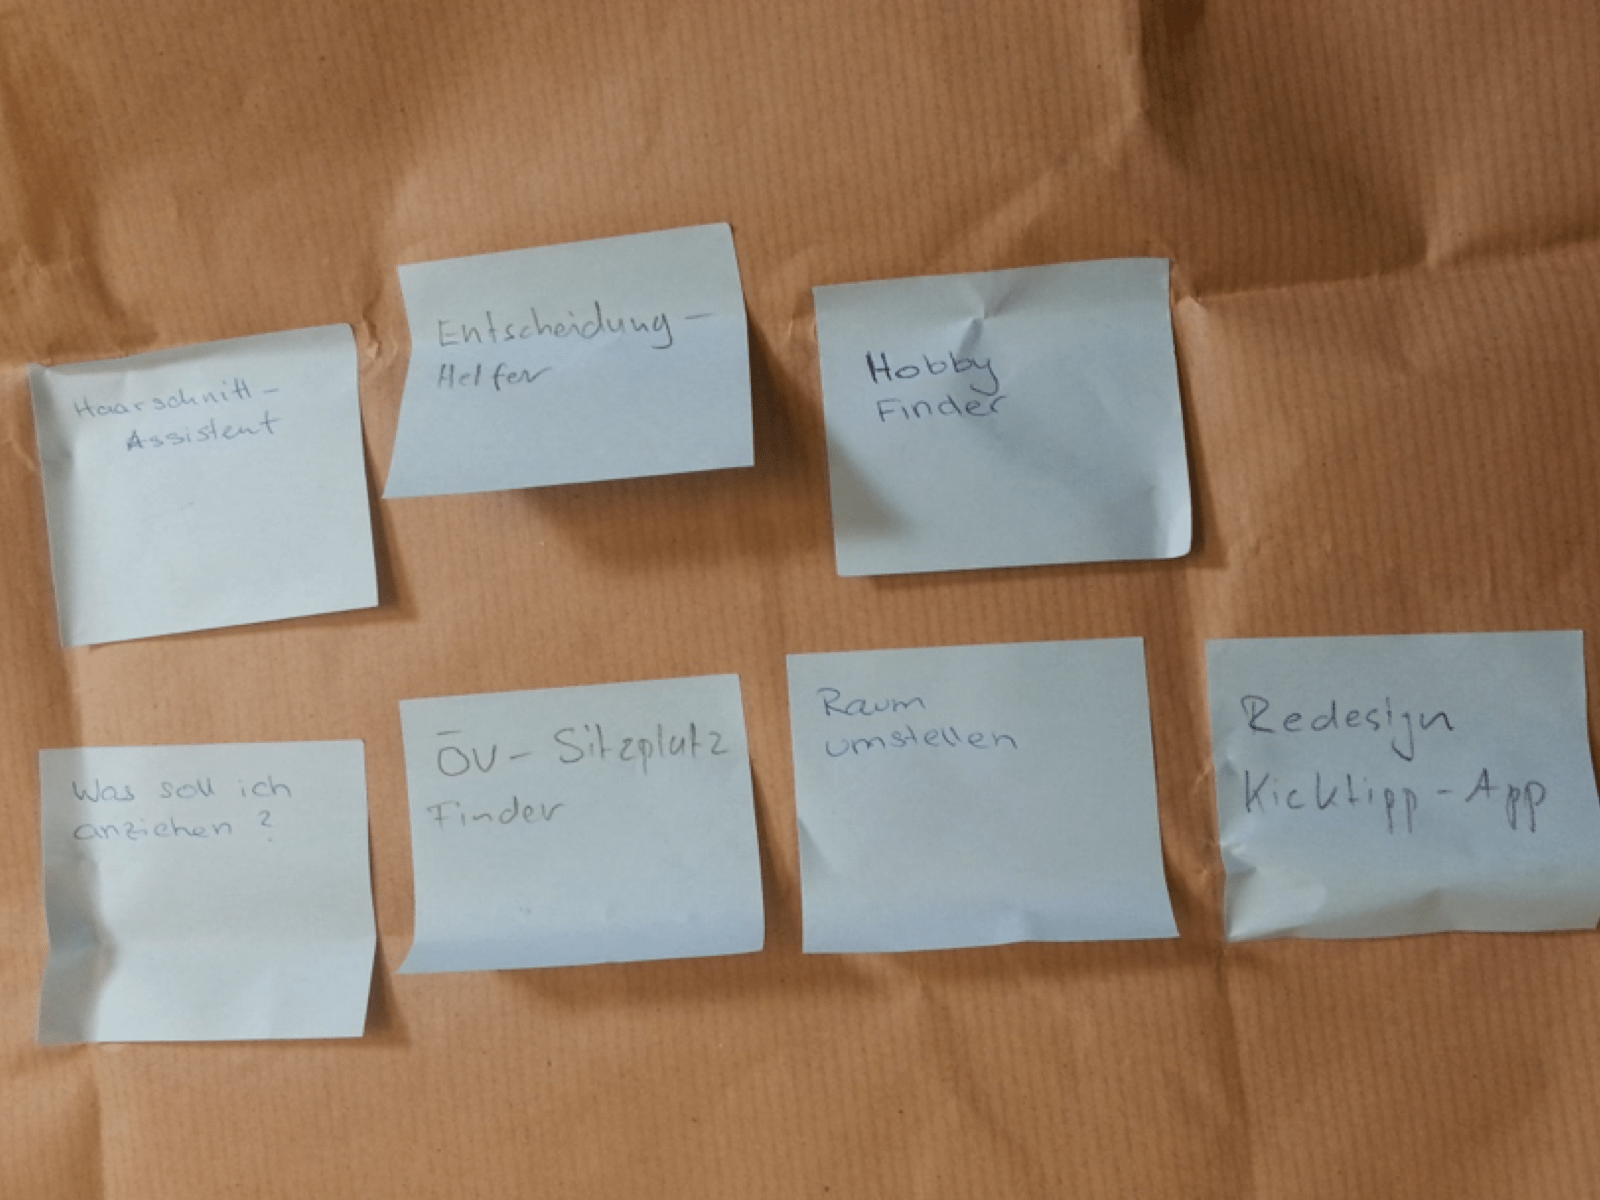 Haarschnitt-
Assistent
Entscheidung-
Helfer
Hobby
Finder
Was soll ich
anziehen?
ÖV-Sitzplatz
Finder
Raum
umstellen
Redesign
Kicktipp-App